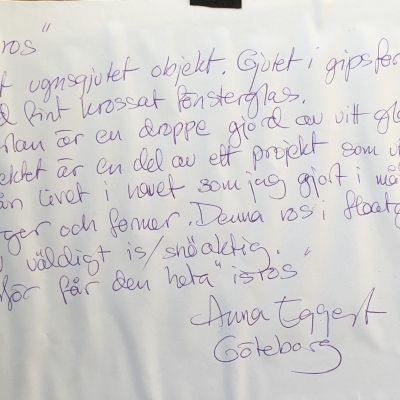 ros"
t ugnsgjutet objekt. Gjutet i gipsfor
d fint krossat fönsterglas.
lan är en droppe gjord av vitt gla
ektet är en del av ett projekt som vi
ån livet i havet som jag gjort i må
ger och former. Denna ros i floatg
väldigt is/snöaktig.
för får den heta "isros"
Anna Eggert
Göteborg